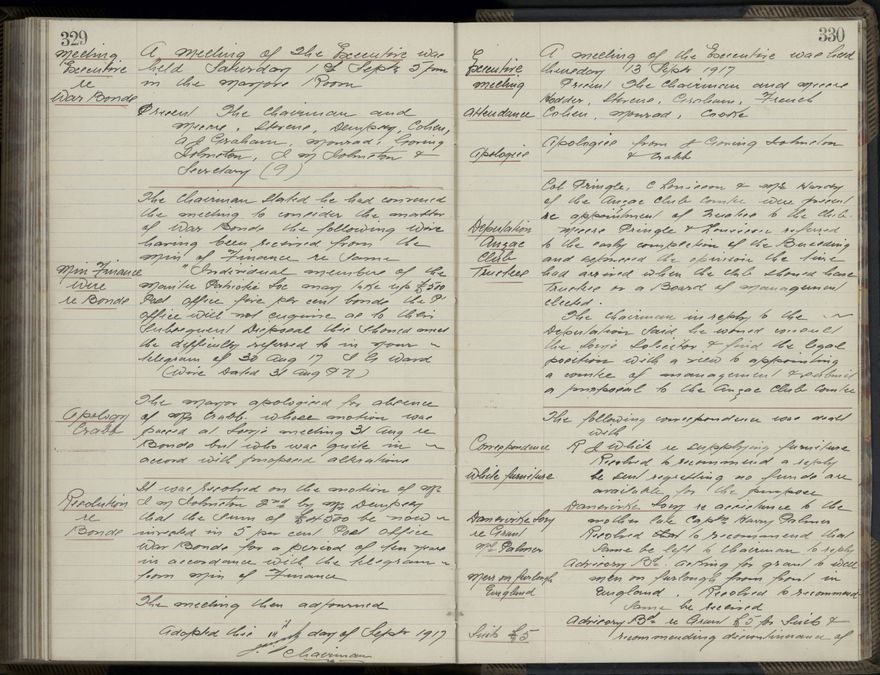 329
Meeting
Executive
re
War Bonds
A meeting of the Executive was
held Saturday 1st Septr 5 pm
in the Mayors Room
Present The Chairman and
Messrs, Stevens, Dempsey, Cohen,
A J Graham, Monrad, Goring
Johnston, J M Johnston &
Secretary (9)
The Chairman stated he had convened
the meeting to consider the matter
of War Bonds the following wire
having been received from the
Min of Finance re same
Min Finance
wire
re Bonds
"Individual members of the
Patriotic Soc may take up £500
Post office five per cent bonds the P
office will not enquire as to their
subsequent disposal this should meet
the difficulty referred to in your
telegram of 30 Aug 17 J G Ward
(Wire dated 31 Aug 17)
Apology
Crabb
The Mayor apologised for absence
of Mr Crabb whose motion was
passed at Socys meeting 31 Aug re
Bonds but who was quite in
accord with proposed alterations
Resolution
re
Bonds
It was resolved on the motion of Mr
J M Johnston 2nd by Mr Dempsey
that the sum of £4500 be now
invested in 5 per cent Post Office
War Bonds for a period of ten years
in accordance with the telegram
from Min of Finance
The meeting then adjourned
Adopted this day of Septr 1917
Chairman
330
Executive
meeting
A meeting of the Executive was held
thursday 13 Septr 1917
Attendance
Present The Chairman and Messrs
Hodder, Stevens, Graham, French
Cohen, Monrad, Cooke
Apologies
Apologies from J Goring Johnston
& Crabb
Deputation
Anzac
Club
Trustees
Col Pringle, C & Mr Hardy
of the Anzac Club Comtee were present
re appointment of Trustees to the Club.
Messrs Pringle & referred
to the early completion of the Building
and expressed the opinion the time
had arrived when the Club should have
Trustees or a Board of Management
elected.
The Chairman in reply to the
Deputation said he would consult
the Socys Solicitor & find the legal
position with a view to appointing
a comtee of management & submit
a proposal to the Anzac Club Comtee
The following correspondence was dealt
with
Correspondence
White furniture
R J White re supplying furniture
Resolved to recommend a reply
be sent regretting no funds are
available for the purpose
Dannevirke Socy
re Grant
Mrs Palmer
Dannevirke Socy re assistance to the
mother late Captn Harry Palmer
Resolved to recommend that
same be left to Chairman to reply
Men on furlough
England
Advisory Bd. asking for grant to well
men on furlough from front in
England. Resolved to recommend
same be received
Suits £5
Advisory Bd re Grant £5 for Suits &
recommending discontinuance of